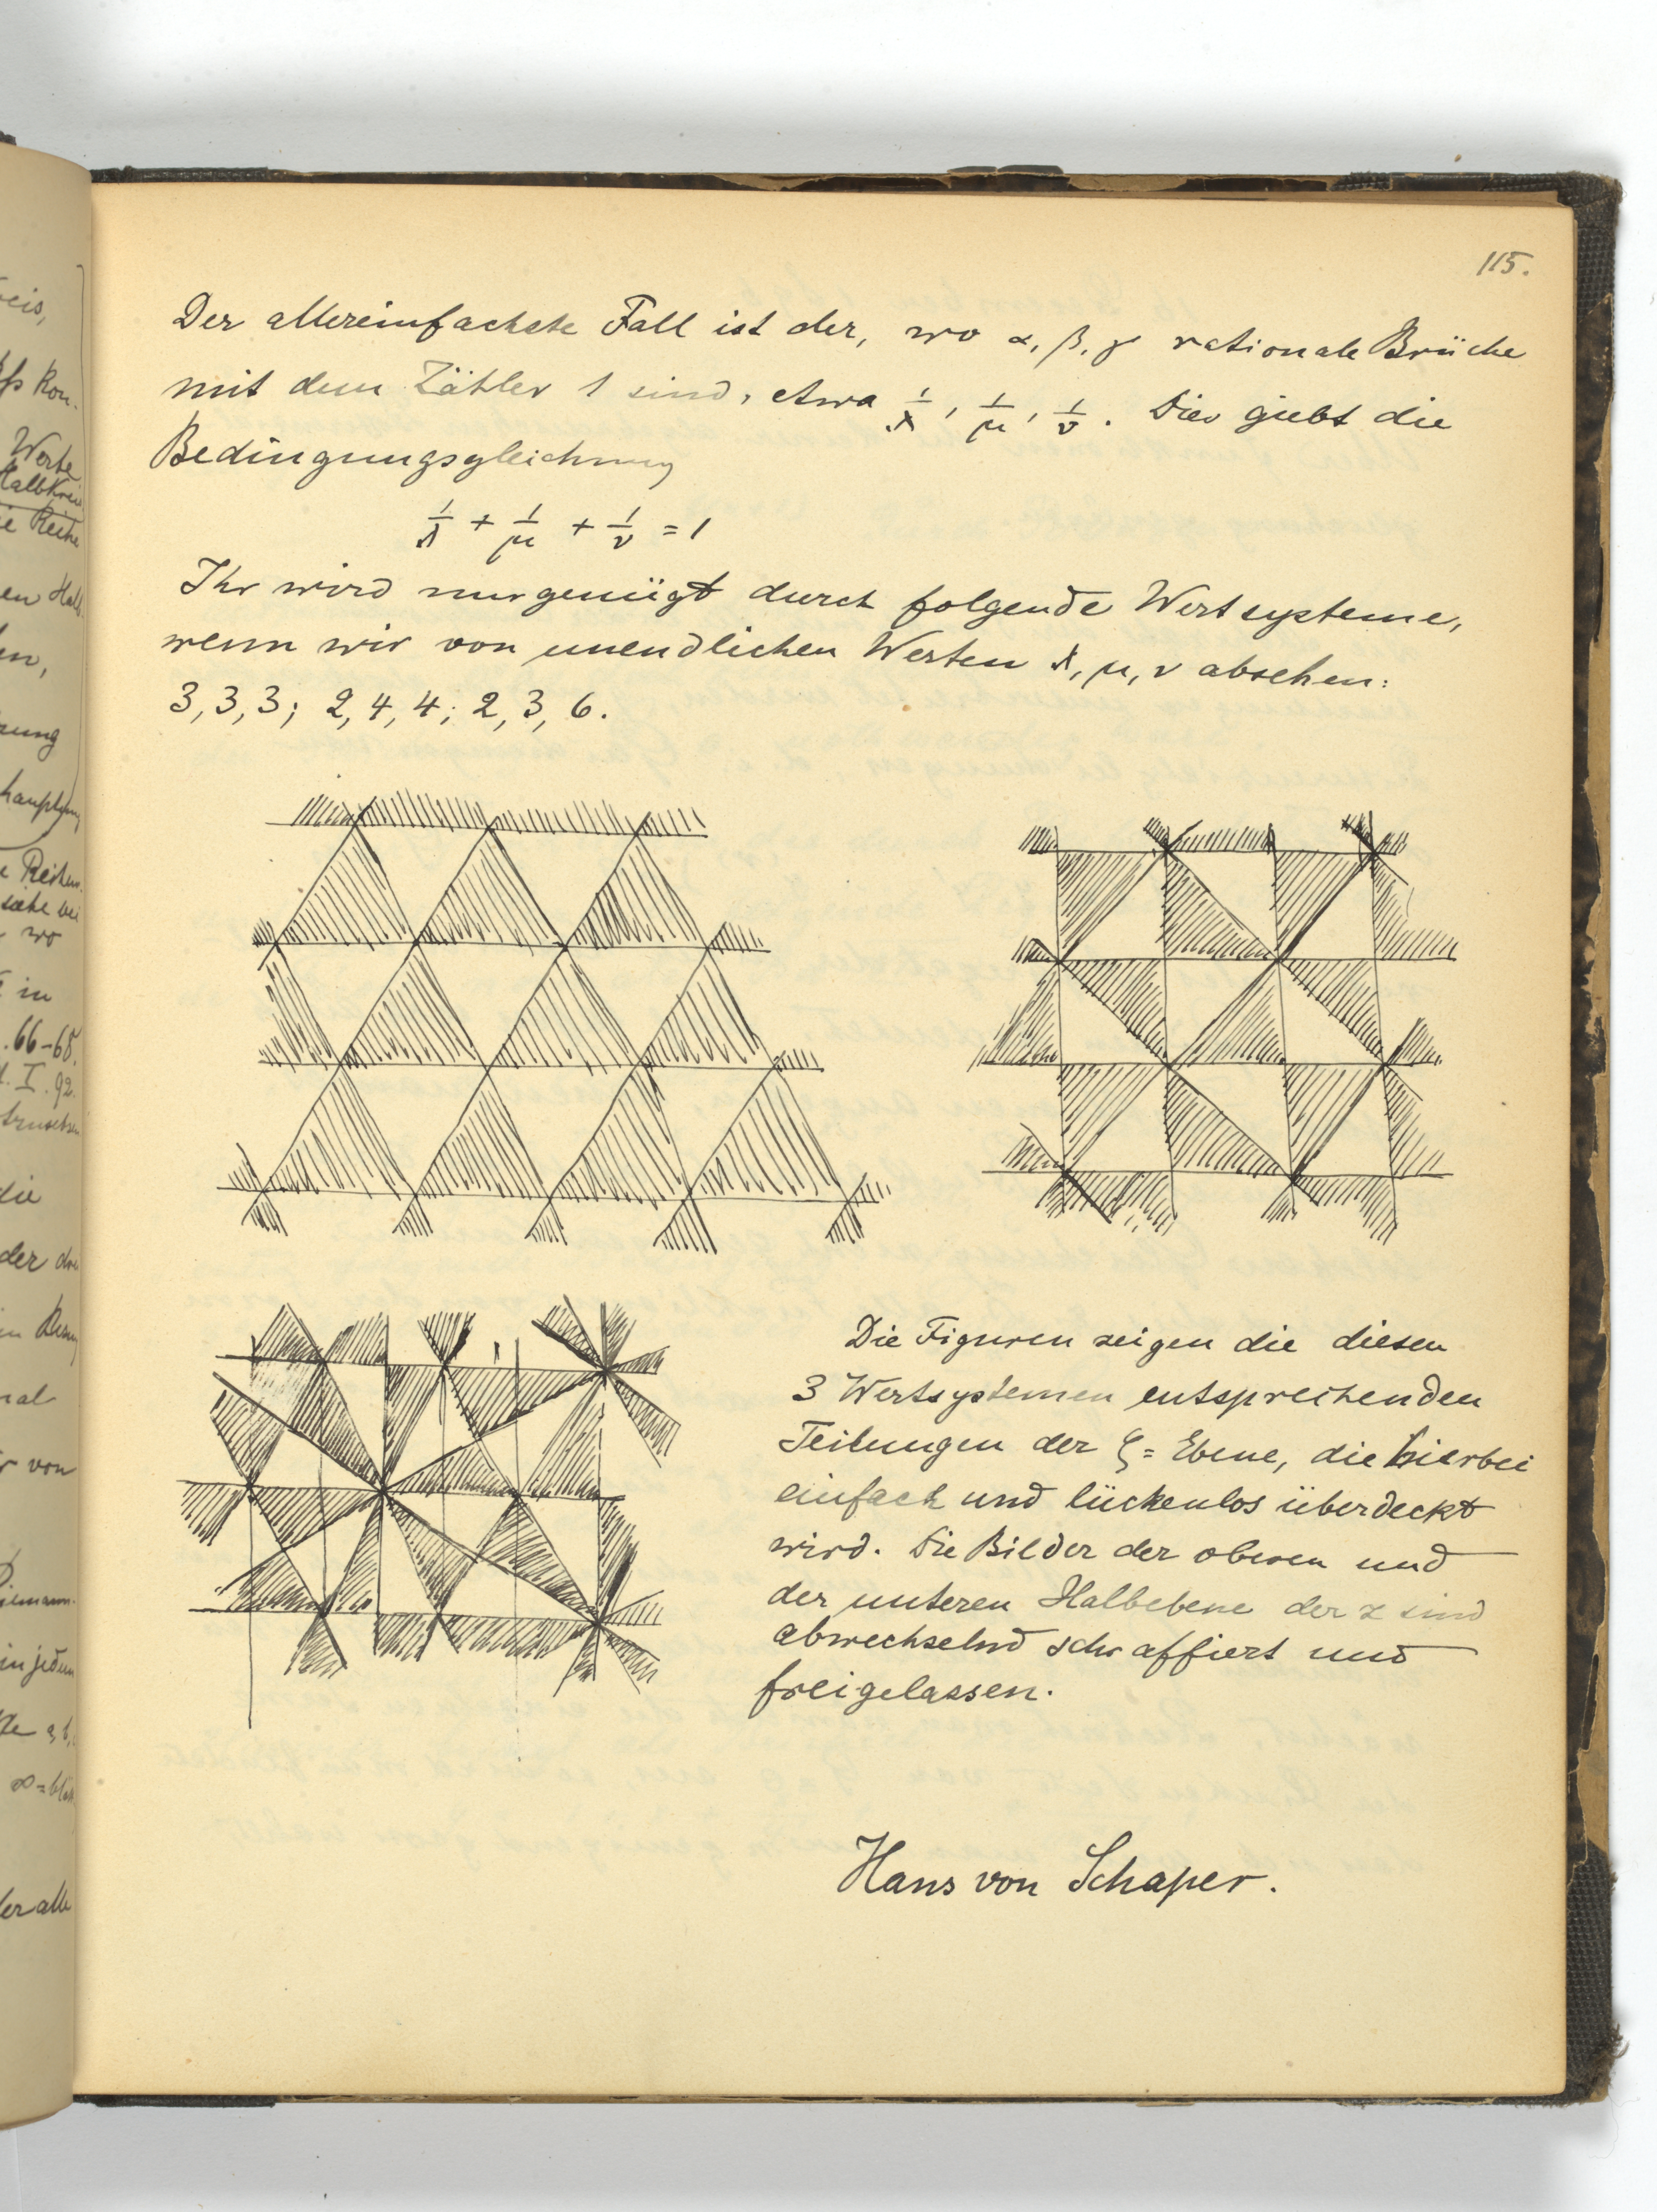 115.
Der allereinfachste Fall ist der, wo α, β, γ rationale Brüche
mit dem Zähler 1 sind, etwa 1/λ, 1/μ, 1/ν. Dies giebt die
Bedingungsgleichung
1/λ + 1/μ + 1/ν = 1
Ihr wird nur genügt durch folgende Wertsysteme,
wenn wir von unendlichen Werten λ, μ, ν absehen:
3, 3, 3; 2, 4, 4; 2, 3, 6.
Die Figuren zeigen die diesen
3 Wertsystemen entsprechenden
Teilungen der ζ = Ebene, die hierbei
einfach und lückenlos überdeckt
wird. Die Bilder der oberen und
der unteren Halbebene der z sind
abwechselnd schraffiert und
freigelassen.
Hans von Schaper.
eis,
Kon-
Werte
Halbkreis
Reihe
en
en,
rung
Reihen
siehe bei
wo
in
. 66-68.
I. 92.
die
der
in
nal
von
Riemann-
in jedem
a, b,
∞ =
der alle